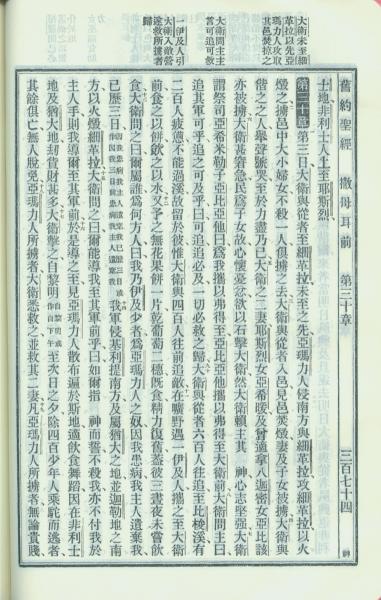 舊約聖經 撒母耳前 第三十章 三百七十四
大衛未至細
革拉以先亞
瑪力人攻取
其邑焚掠之
大衛問主主
言可追可救
一伊及人引
大衛入敵營
遂救所擄者
歸
土地非利士人上至耶斯烈
第三十章 第三日大衛與從者至細革拉未至之先亞瑪力人侵南方與細革拉攻細革拉以火
燬之擄邑中大小婦女不殺一人俱擄之去大衛與從者入邑見邑焚燬妻及子女被擄大衛與
偕之之人舉聲號哭至於力盡乃已大衛之二妻耶斯烈女亞希暖及曾適拿八迦密女亞比該
亦被擄大衛甚窘急民爲子女故心懷憂忿欲以石擊大衛然大衛賴主其 神心志堅强大衛
謂祭司亞希米勒子亞比亞他曰爲我攜以弗得至亞比亞他攜以弗得至大衛前大衛問主曰
追其軍可乎追之可及乎曰可追追必及一切必救之歸大衛與從者六百人往追至比梭溪有
二百人疲憊不能過溪故留於彼惟大衛與四百人往前追敵在曠野遇一伊及人攜之至大衛
前食之以餅飲之以水又予之無花果餅一片乾葡萄二穗旣食精力復舊蓋彼三晝夜未嘗飲
食大衛問之曰爾屬誰爲何方人曰我乃伊及少者爲亞瑪力人之奴因我患病我主人遺棄我
已歷三日 我軍侵基利提南方及屬猶大之地並迦勒地之南
方以火燬細革拉大衛問之曰爾能導我至其軍前乎曰如爾指 神而誓不殺我亦不付我於
主人手則我導爾至其軍前於是導之至見亞瑪力人散布遍於斯地適飲食舞蹈因在非利士
地及猶大地劫貨財甚多大衛擊之自黎明 自黎明或作自下午 至次日之夕除四百少年人乘駝而逃者
其餘俱亡無人脫免亞瑪力人所擄者大衛悉救之並救其二妻凡亞瑪力人所擄者無論貴賤